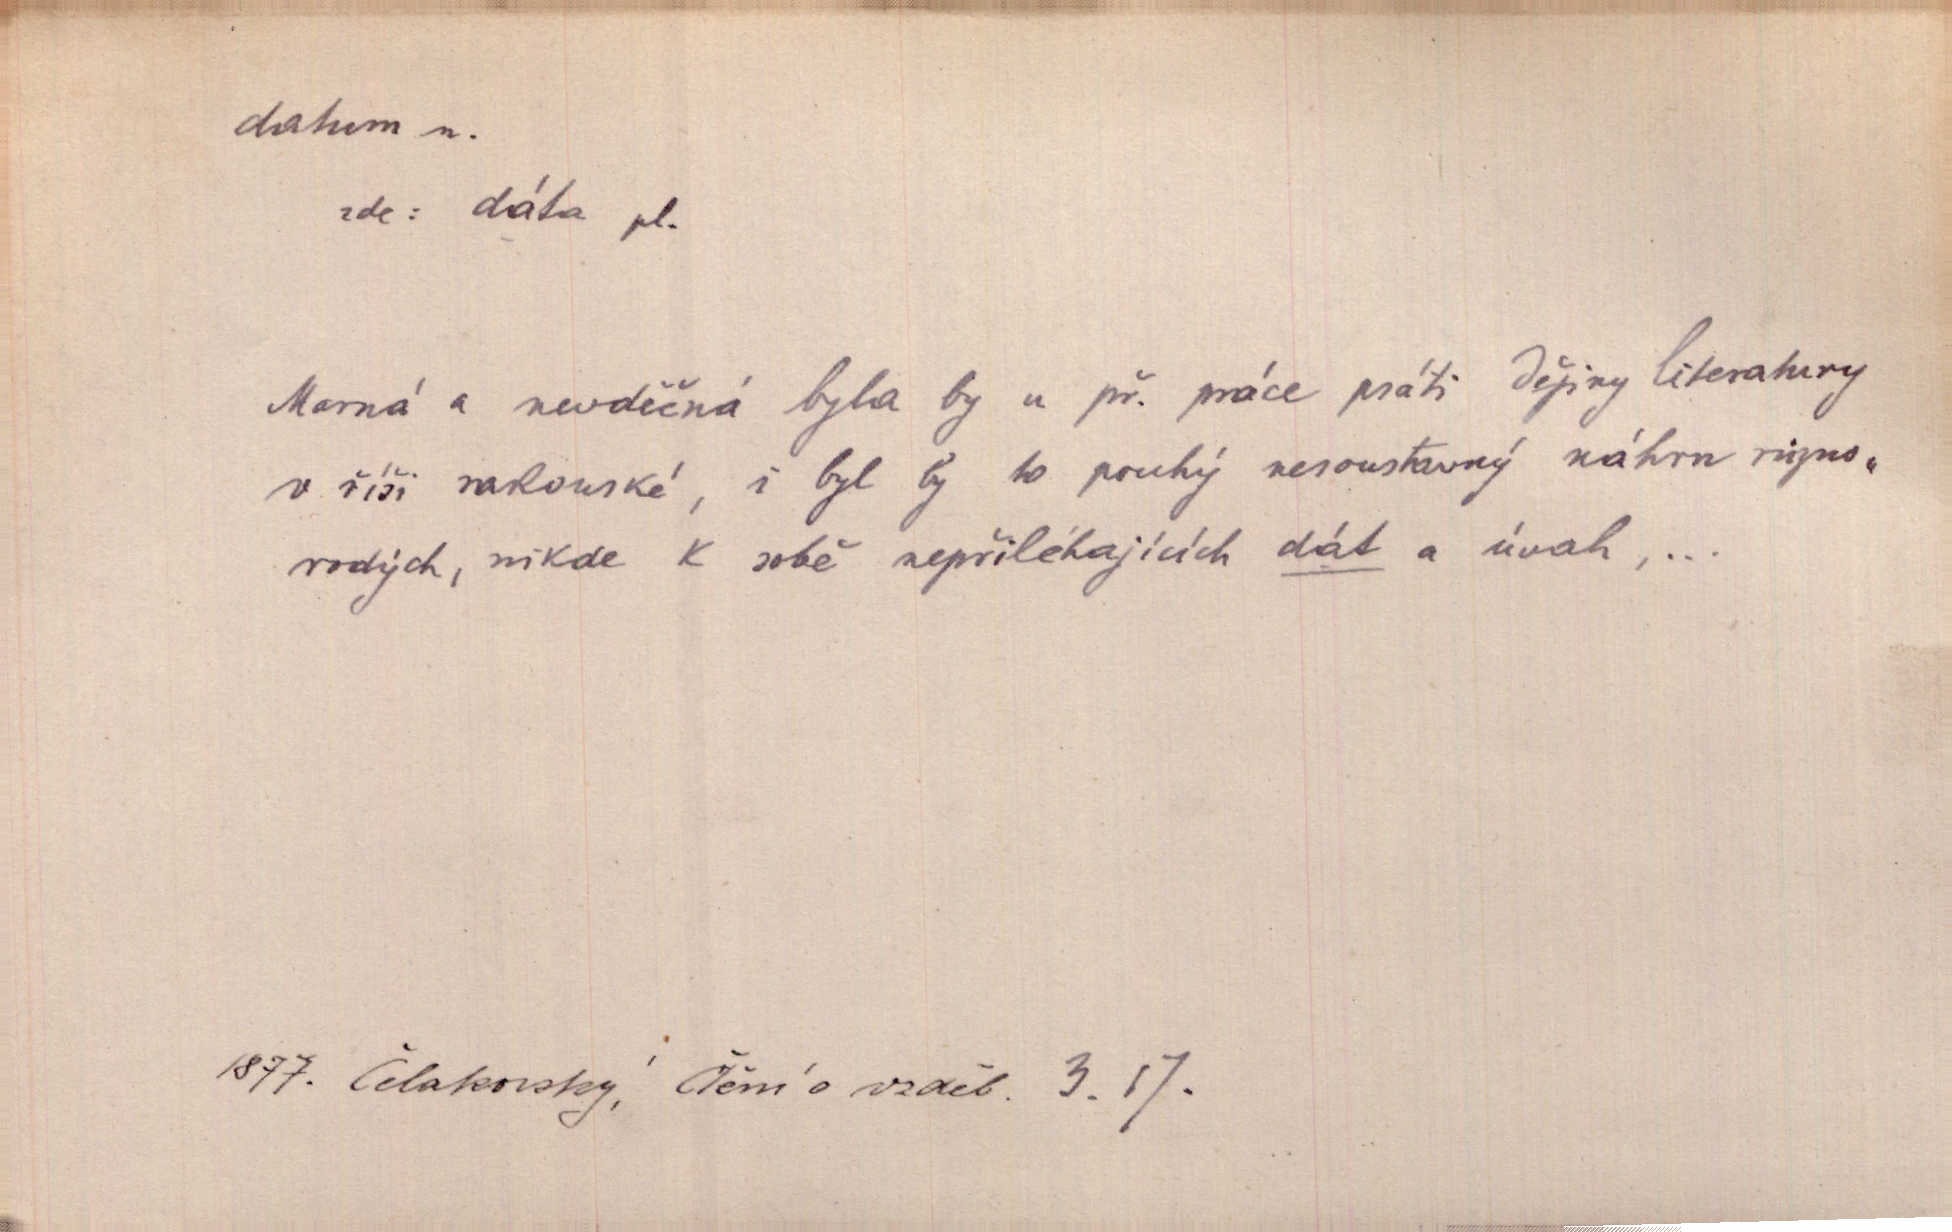 datum n.
zde: dáta pl.
Marná a nevděčná byla by n př. práce psáti dějiny literatury
v říši rakouské, i byl by to pouhý nesoustavný náhrn různo„
rodých, nikde k sobě nepřiléhajících dát a úvah, ...
1877. Čelakovský, Čtění o vzděl. 3. 17.